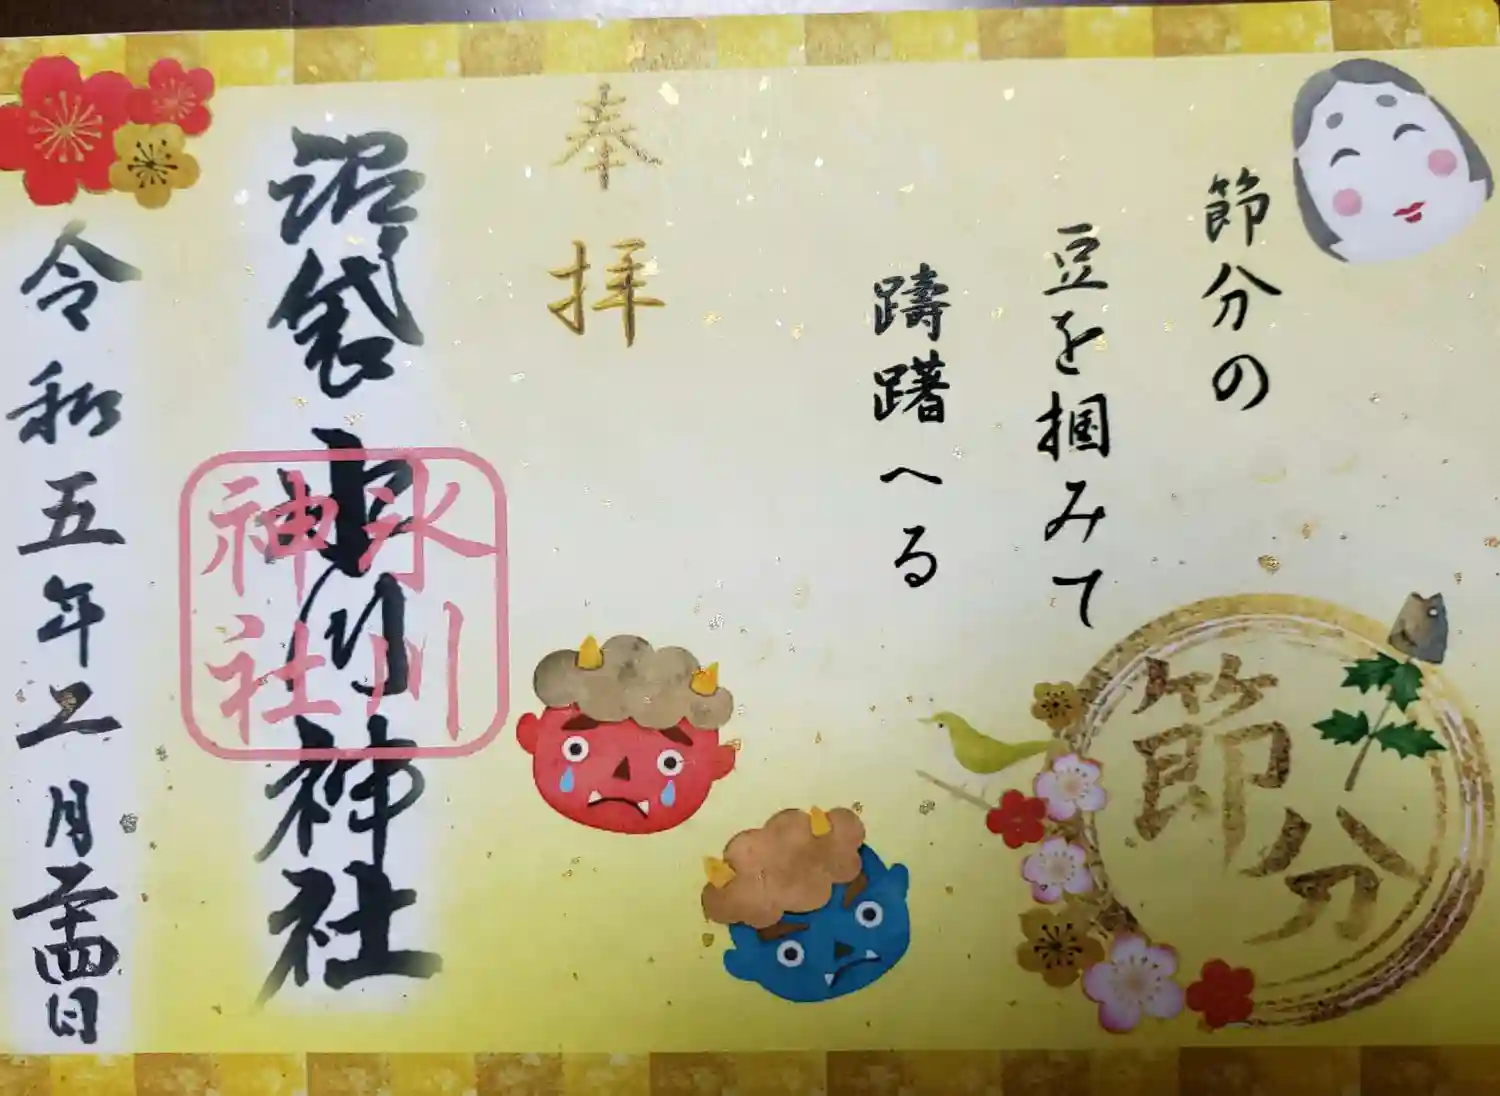 節分の
豆を掴みて
躊躇へる
奉拝
沼袋氷川神社
氷川
神社
令和五年二月二十四日
節分